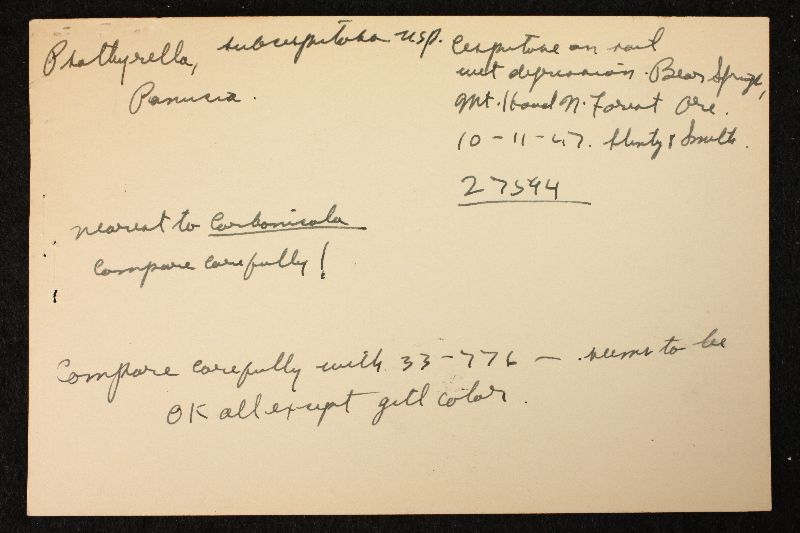 Psathyrella, subcespitosa nsp.
Panucia.
Cespitose on soil
wet depression. Bear Springs,
Mt. Hood N. Forest Ore.
10-11-47. & Smith.
27594
nearest to Carbonicola
Compare carefully!
Compare carefully with 33-776 — seems to be
OK all except gill color.